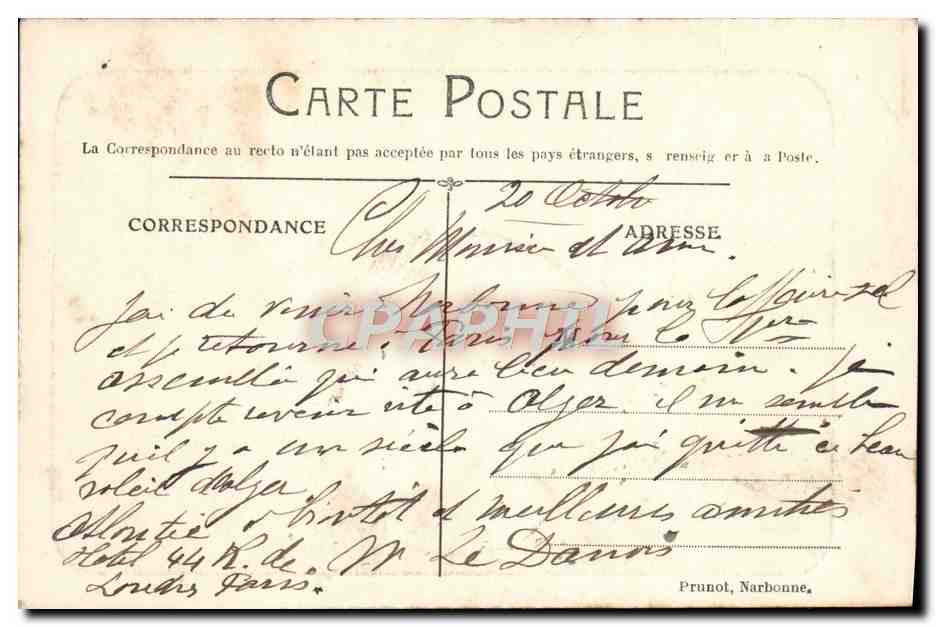 CARTE POSTALE
La Correspondance au recto n'étant pas acceptée par tous les pays étrangers, s renseig er à a Poste.
20 Octobr
CORRESPONDANCE
ADRESSE
Cher Monsieur et ami.
J'ai du venir à Narbonne pour
et je retourne à Paris pour la 1ère
assemblée qui aura lieu demain. Je
compte revenir vite à Alger, il me semble
qu'il y a un siècle que j'ai quitté ce beau
soleil d'Alger
à bientôt et meilleures amitiés
Hotel 44 R. de M Le Danois
Londres Paris.
CPAPHIL
Prunot, Narbonne.